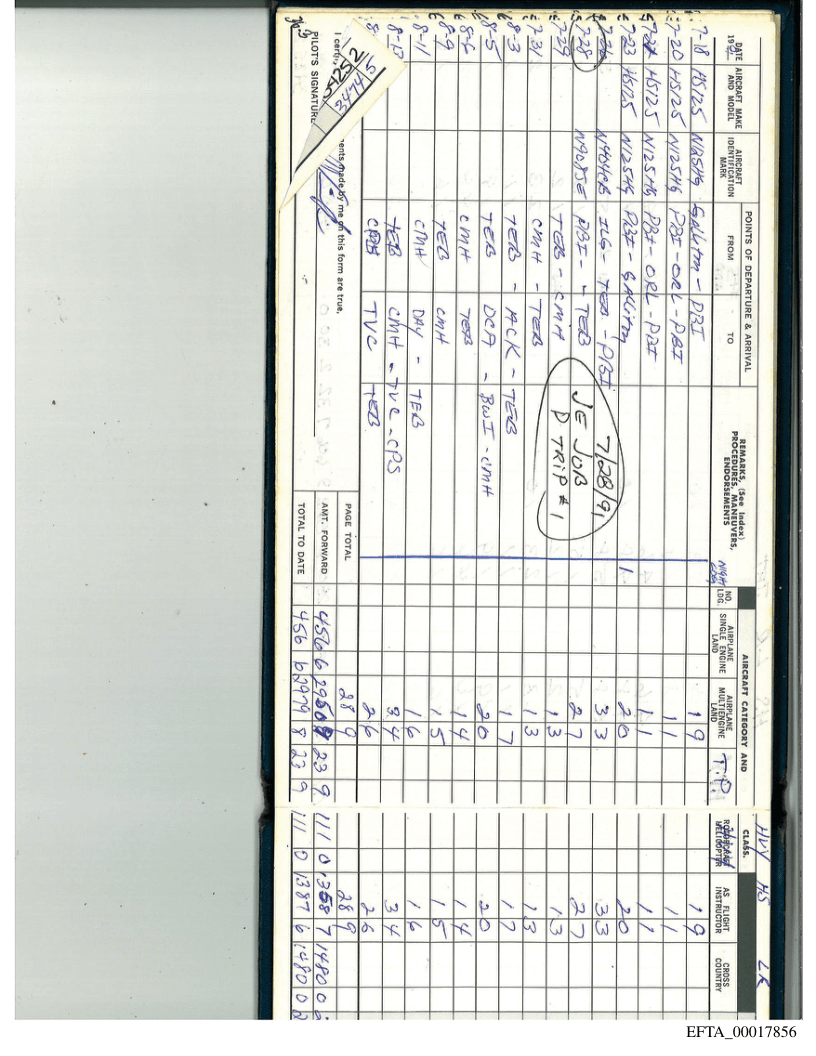 DATE 1991 AIRCRAFT MAKE AND MODEL AIRCRAFT IDENTIFICATION MARK POINTS OF DEPARTURE & ARRIVAL FROM TO REMARKS, (See Index) PROCEDURES, MANEUVERS, ENDORSEMENTS NIGHT LDG NO. LDG. AIRCRAFT CATEGORY AND CLASS. AIRPLANE SINGLE ENGINE LAND AIRPLANE MULTIENGINE LAND T.P. HELICOPTER AS FLIGHT INSTRUCTOR CROSS COUNTRY
HVY HS LR
7-18 HS125 N125HG Gallitin - PBI 1 9 1 9
7-20 HS125 N125HG PBI - ORL - PBI 1 1 1 1
HS125 N125HG PBI - ORL - PBI 1 1 1 1
7-23 HS125 N125HG PBI - Gallitin 1 2 0 2 0
ILG - TEB - PBI 3 3 3 3
7-28 N908JE PBI - TEB 2 7 2 7
7/28/91
JE JOB
D TRIP #1
TEB - CMH 1 3 1 3
7-31 CMH - TEB 1 3 1 3
8-3 TEB - ACK - TEB 1 7 1 7
8-5 TEB DCA - BWI - CMH 2 0 2 0
8-6 CMH TEB 1 4 1 4
8-9 TEB CMH 1 5 1 5
8-11 CMH DAY - TEB 1 6 1 6
8-13 TEB CMH - TVC - CPS 3 4 3 4
TVC TEB 2 6 2 6
PAGE TOTAL 28 9 28 9
ments made by me on this form are true. AMT. FORWARD 456 6 23 9 111 0 1358 7 1480 0
I certify
PILOT'S SIGNATURE TOTAL TO DATE 456 6 2979 8 23 9 111 0 1387 6 1480 0
34745
EFTA_00017856